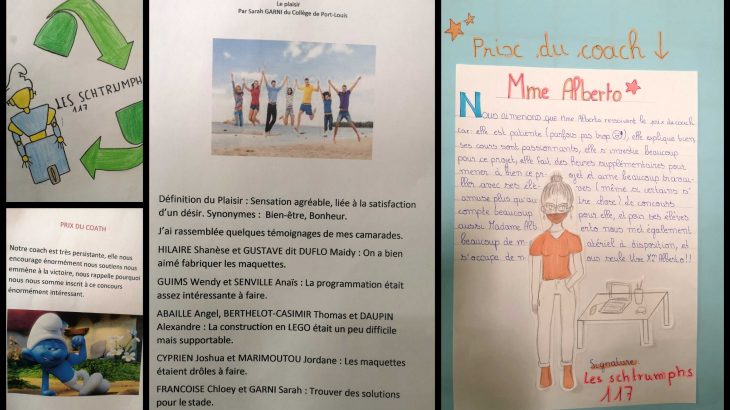 LES SCHTRUMPHS
117
PRIX DU COATH
Notre coach est très persistante, elle nous
encourage énormément nous soutiens nous
emmène à la victoire, nous rappelle pourquoi
nous nous somme inscrit à ce concours
énormément intéressant.
Le plaisir
Par Sarah GARNI du Collège de Port-Louis
Définition du Plaisir : Sensation agréable, liée à la satisfaction
d'un désir. Synonymes : Bien-être, Bonheur.
J'ai rassemblée quelques témoignages de mes camarades.
HILAIRE Shanèse et GUSTAVE dit DUFLO Maidy : On a bien
aimé fabriquer les maquettes.
GUIMS Wendy et SENVILLE Anaïs : La programmation était
assez intéressante à faire.
ABAILLE Angel, BERTHELOT-CASIMIR Thomas et DAUPIN
Alexandre : La construction en LEGO était un peu difficile
mais supportable.
CYPRIEN Joshua et MARIMOUTOU Jordane : Les maquettes
étaient drôles à faire.
FRANCOISE Chloey et GARNI Sarah : Trouver des solutions
pour le stade.
Prix du coach ↓
Mme Alberto
Nous aimerions que Mme Alberto ressoivent le prix de coach
car elle est patiente (parfois pas trop), elle explique bien,
ses cours sont passionnants, elle s'investie beaucoup
pour ce projet, elle fait des heures supplémentaires pour
mener à bien ce projet et aime beaucoup travai-
ller avec ses élèves (même si certains s'
amuse plus qu'autre chose) ce concours
compte beaucoup pour elle, et pour ses élèves
aussi. Madame Alberto nous met également
beaucoup de matériel à disposition, et
s'occupe de nous seule Vive Mme Alberto!!
Signature:
Les schtrumphs
117